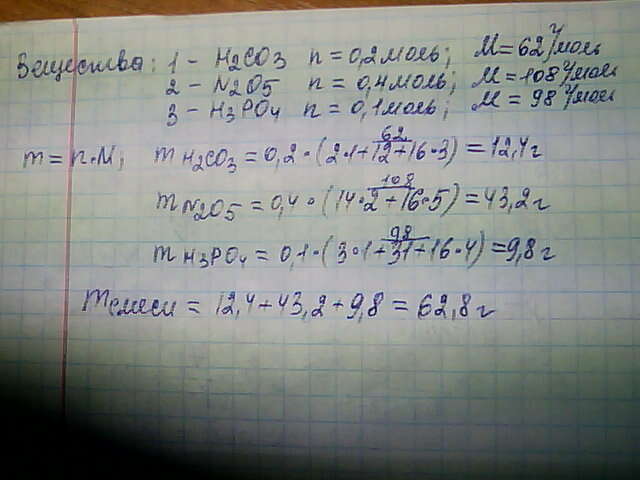 Вещества: 1 - H2CO3 n = 0,2 моль; M = 62 г/моль
2 - N2O5 n = 0,4 моль; M = 108 г/моль
3 - H3PO4 n = 0,1 моль; M = 98 г/моль
62
m = n·M; m H2CO3 = 0,2·(2·1+12+16·3) = 12,4 г
108
m N2O5 = 0,4·(14·2+16·5) = 43,2 г
98
m H3PO4 = 0,1·(3·1+31+16·4) = 9,8 г
m смеси = 12,4+43,2+9,8 = 62,8 г